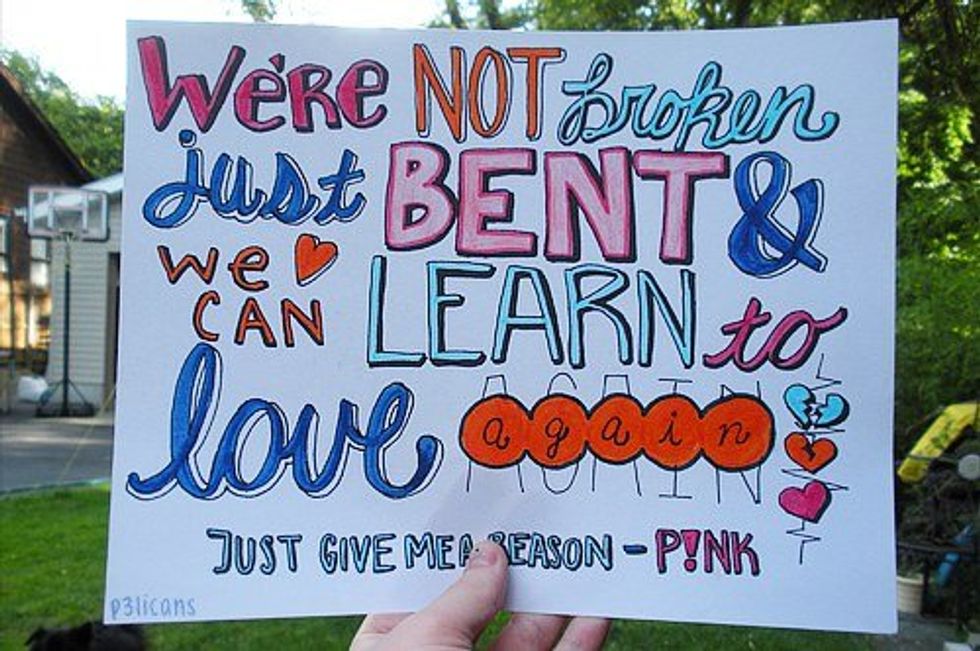 We're NOT broken
just BENT &
we CAN LEARN to
love again
AGAIN
JUST GIVE ME A REASON - P!NK
p3licans